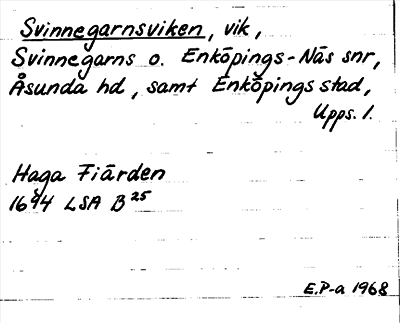 Svinnegarnsviken, vik,
Svinnegarns o. Enköpings-Näs snr,
Åsunda hd, samt Enköpings stad,
Upps. l.
Haga Fiärden
1694 LSA B 25
E.P-a 1968